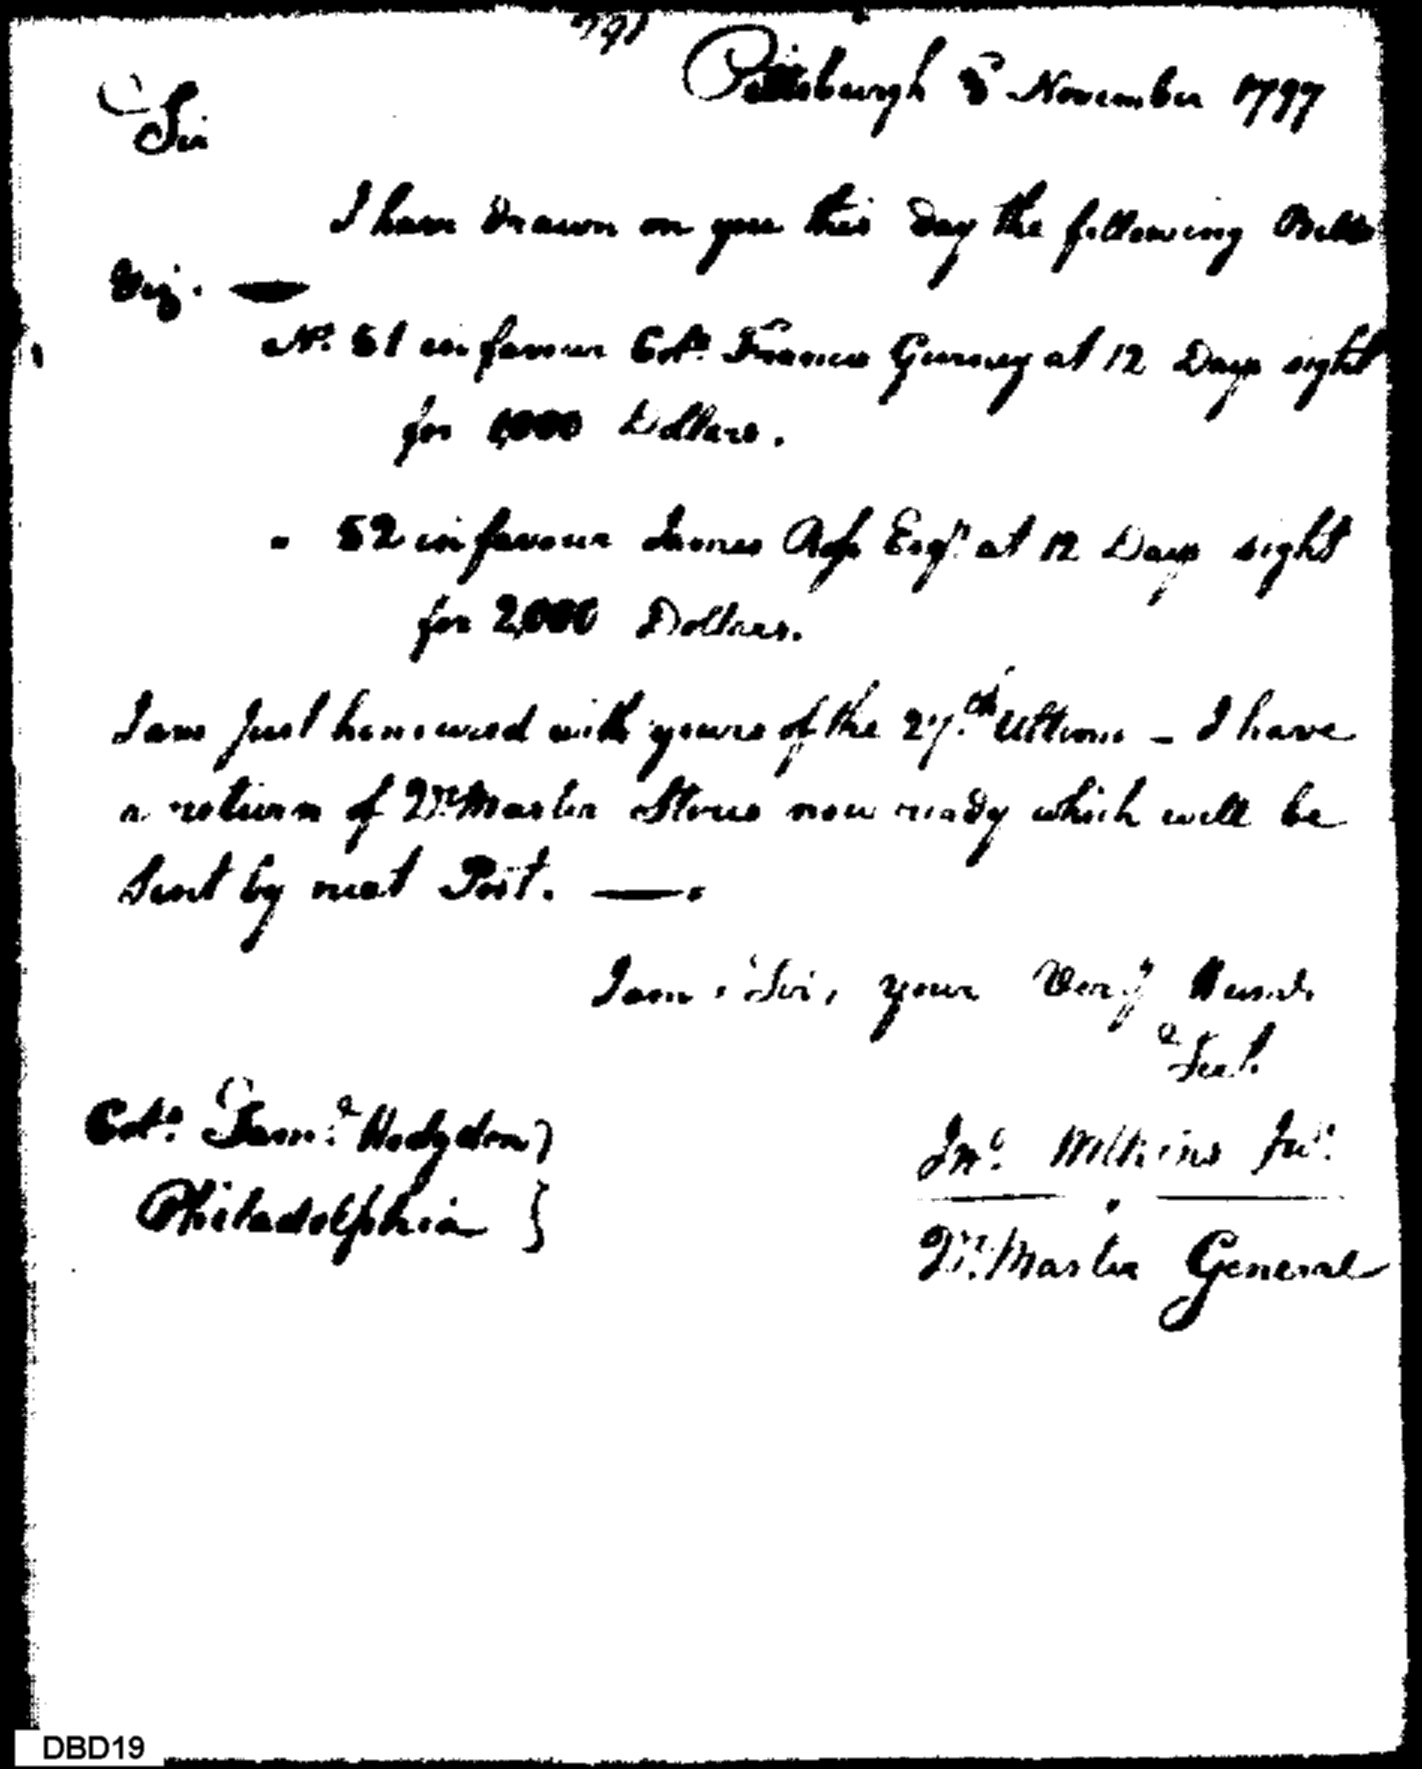 Pittsburgh 8 November 1797
Sir
I have drawn on you this day the following Bills
Viz. —
No. 51 in favour Colo. Francis Gurney at 12 Days sight
for 1,000 Dollars.
" 52 in favour James Ross Esqr. at 12 Days sight
for 2,000 Dollars.
I am Just honoured with yours of the 27th. Ultimo - I have
a return of Qr. Master Stores now ready which will be
Sent by next Post. —
I am, Sir, your Very Humb.
Sert.
Colo. Saml. Hodgdon }
Philadelphia }
Jno. Wilkins Jur.
Qr. Master General
DBD19